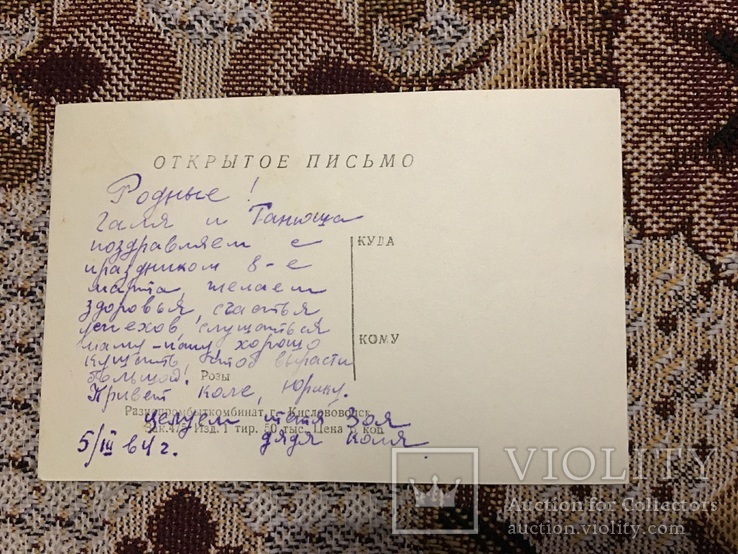 ОТКРЫТОЕ ПИСЬМО
Родные!
Галя и Танюша
поздравляем с
праздником 8-е
марта, желаем
здоровья, счастья,
успехов, слушаться
маму-папу, хорошо
кушать чтоб вырасти
большой!
Розы
Привет Коле, Юрику.
Разнопромбыткомбинат г. Кисловодск
целуем тётя Зоя
Зак. Изд. 1 тир. 50 тыс. Цена коп.
дядя Коля
5/III 64 г.
КУДА
КОМУ
VIOLITY
Auction for Collectors
auction.violity.com